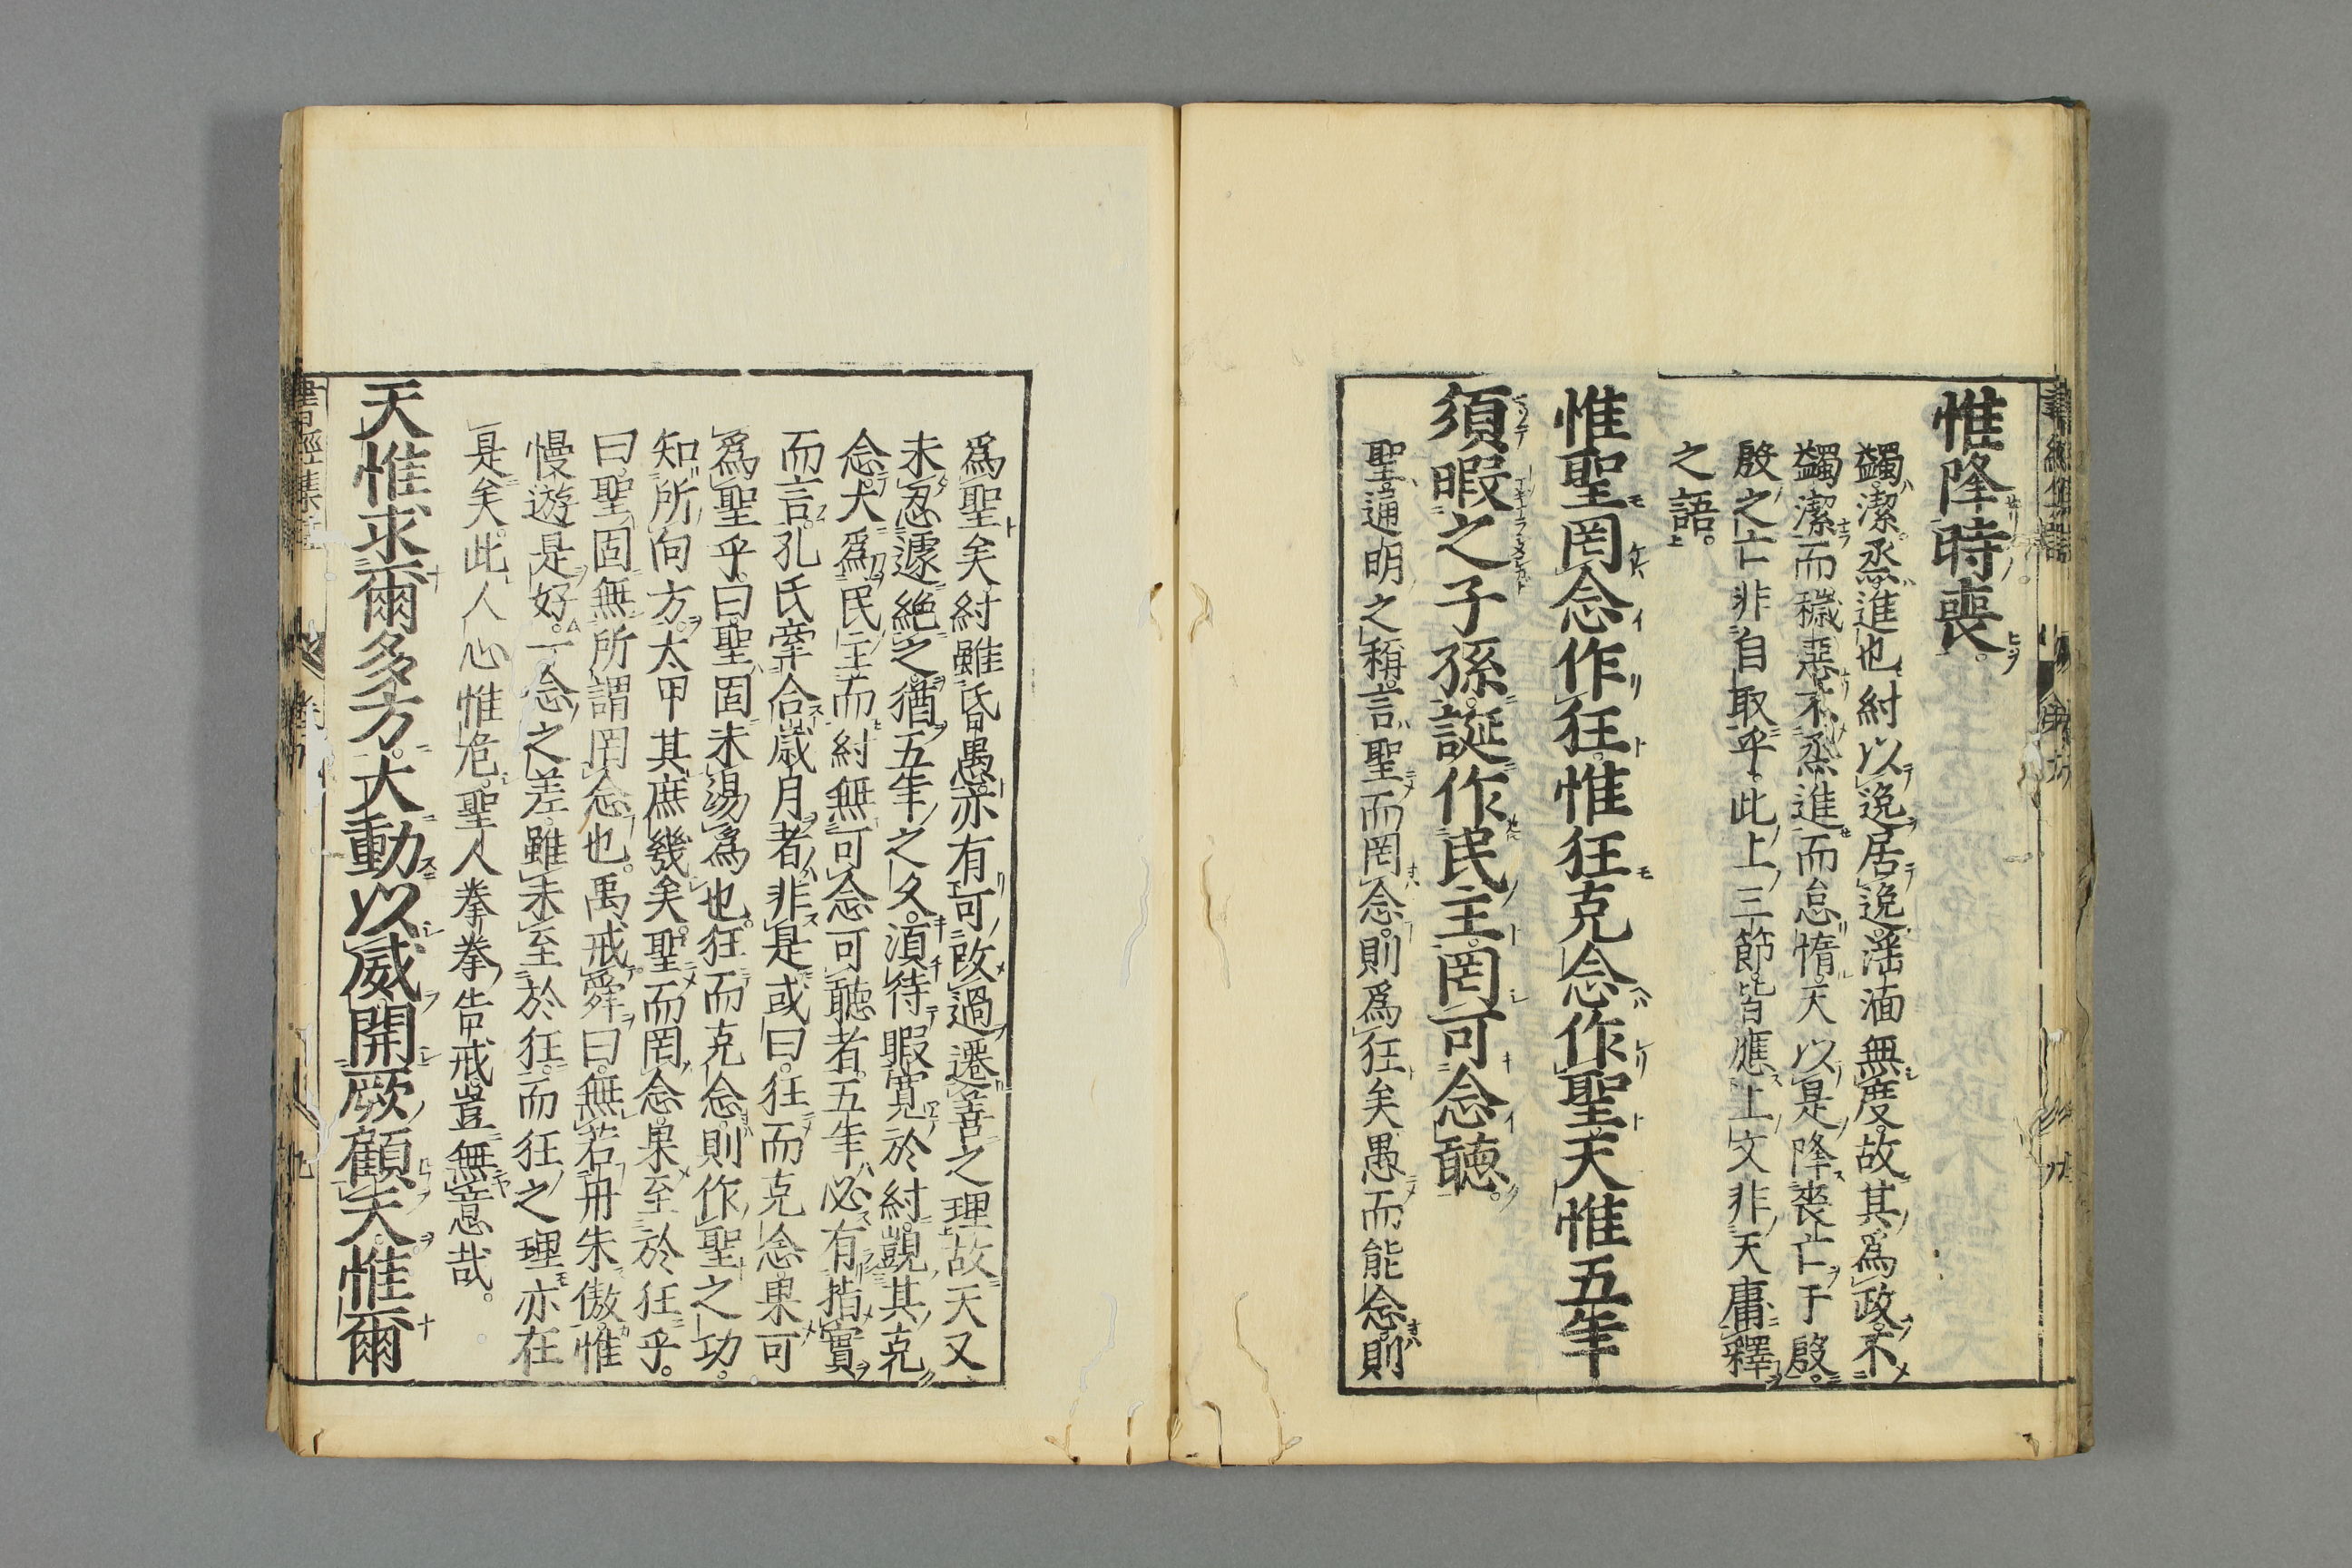 惟降時喪。
蠲潔。烝進也紂以逸居逸。滛湎無度。故其爲政。不
蠲潔而穢惡。不烝進而怠惰。天以是降喪亡于殷。
殷之亡非自取乎。此上三節。皆應上文非天庸釋
之語。
惟聖罔念作狂。惟狂克念作聖。天惟五年
須暇之子孫。誕作民主。罔可念聽。
聖。通明之稱。言聖而罔念。則爲狂矣愚而能念。則
爲聖矣紂雖昏愚。亦有可改過遷善之理。故天又
未忍遽絶之。猶五年之久。須待暇寛於紂。覬其克
念。大爲民主。而紂無可念可聽者。五年必有指實
而言。孔氏牽合歲月者。非是。或曰。狂而克念。果可
爲聖乎。曰。聖固未易爲也。狂而克念。則作聖之功。
知所向方。太甲其庶幾矣。聖而罔念。果至於狂乎。
曰。聖固無所謂罔念也。禹戒舜曰。無若丹朱傲。惟
慢遊是好。一念之差。雖未至於狂。而狂之理亦在
是矣。此人心惟危。聖人拳拳告戒。豈無意哉。
天惟求爾多方。大動以威。開厥顧天。惟爾